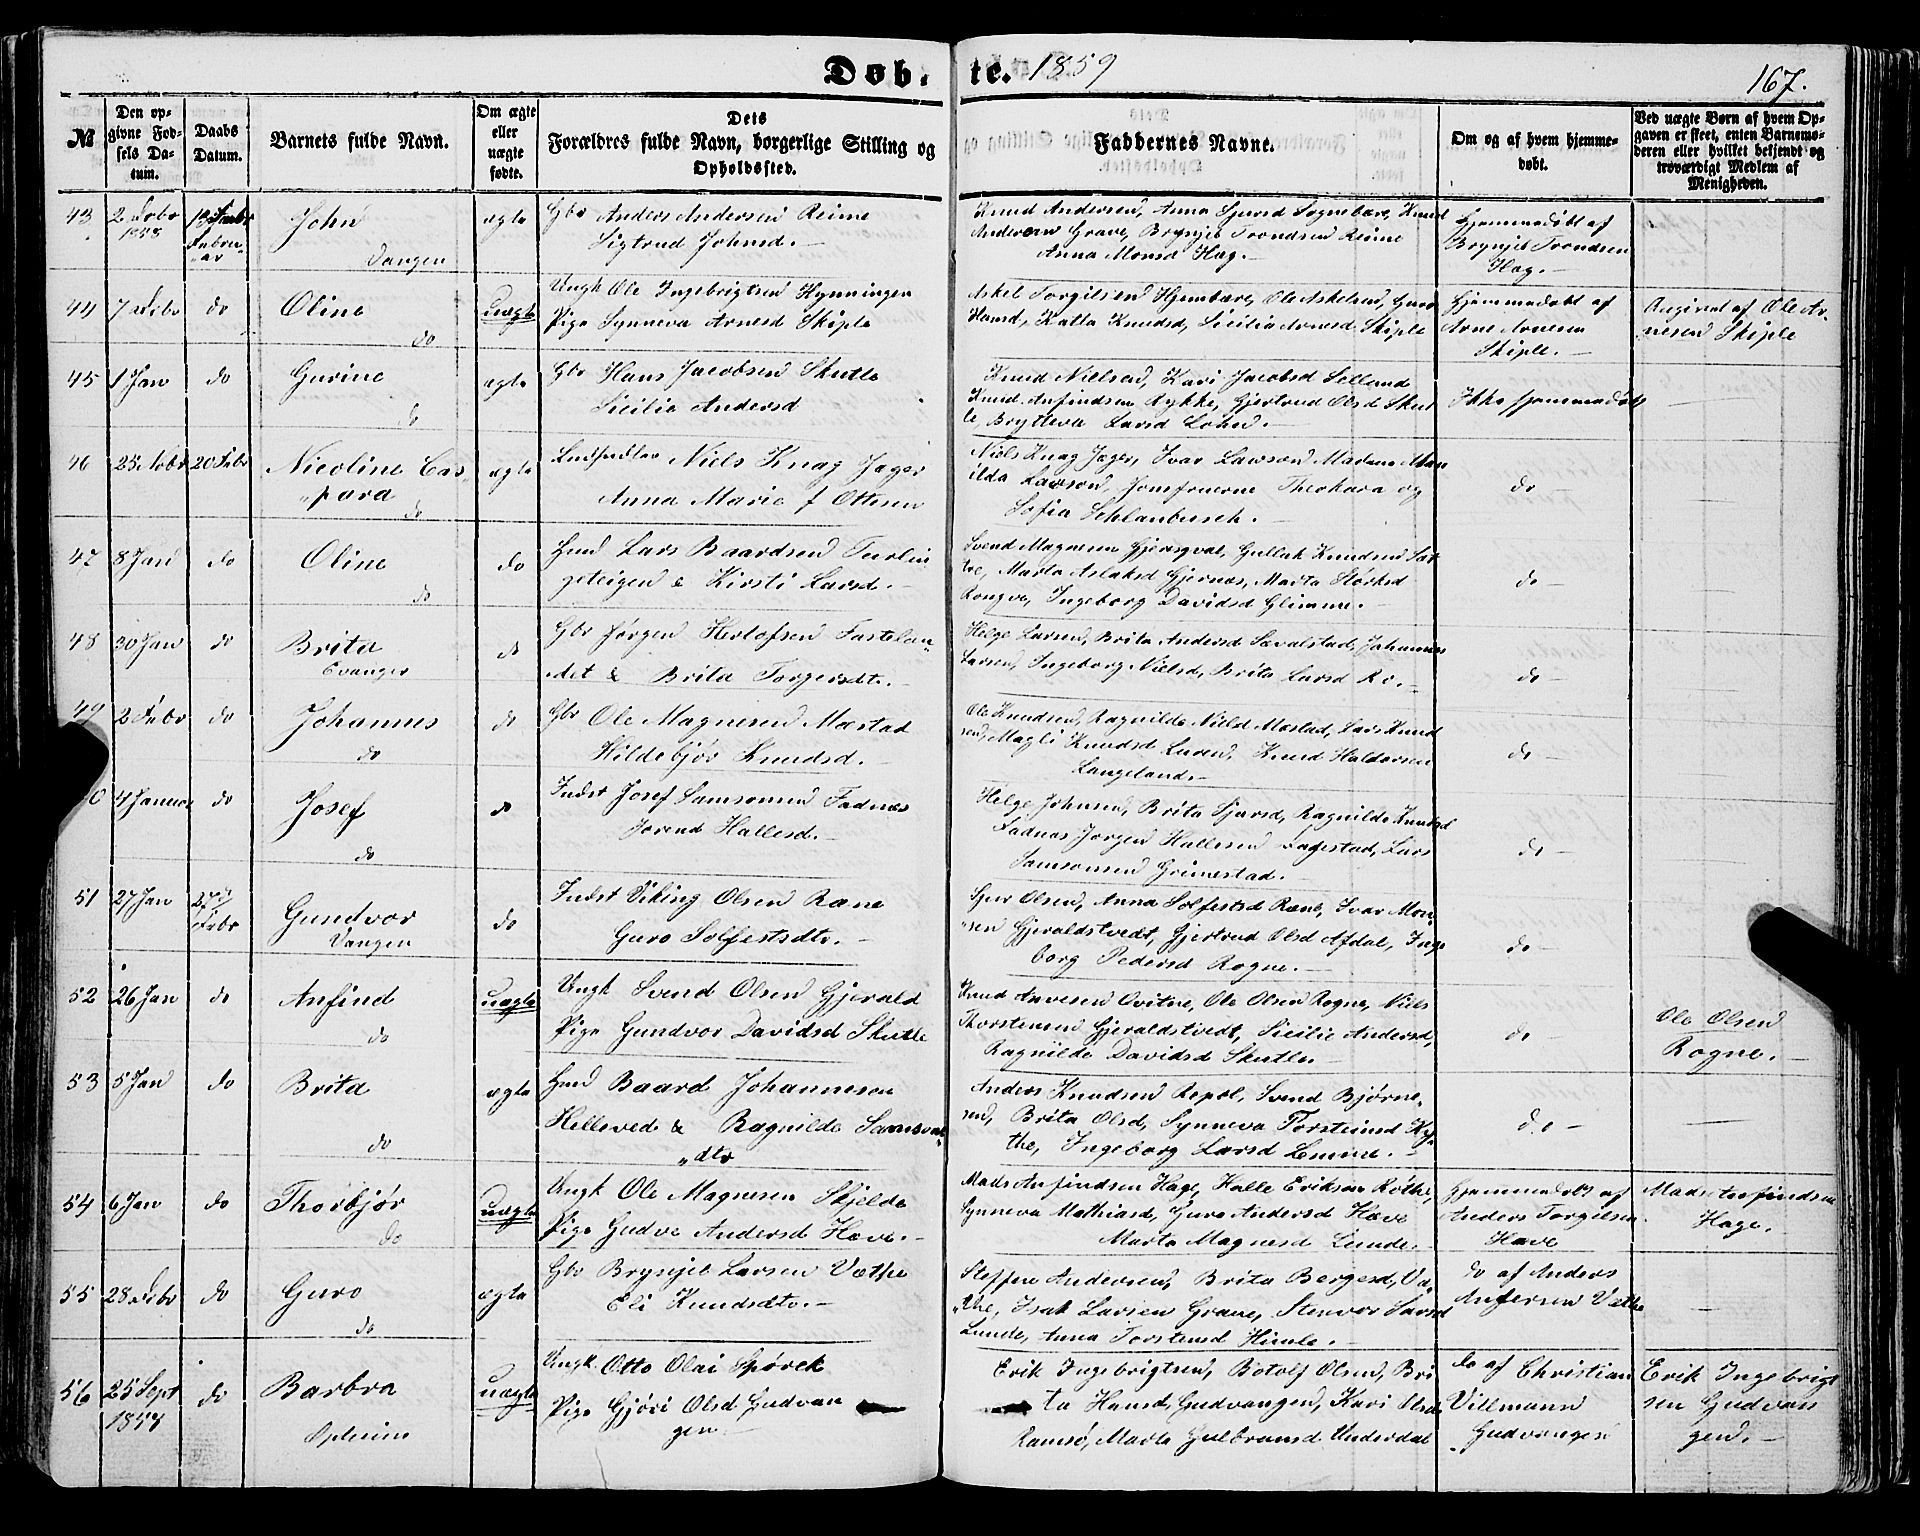 Døb. te. 1859
167.
№
Den opgivne Fødsels Datum.
Daabs Datum.
Barnets fulde Navn.
Om ægte eller uægte fødte.
Dets Forældres fulde Navn, borgerlige Stilling og Opholdssted.
Faddernes Navne.
Om og af hvem hjemmedøbt.
Ved uægte Børn af hvem Opgaven er skeet, enten Barnemoderen eller hvilket bekjendt og troværdigt Medlem af Menigheden.
43 2 Febr 1858 Februar John Vangen ægte Gbr Anders Andersen Reime
Sigtrud Johnsd. -
Knud Andersen, Anna Sjursd Sognebære, Knud
Andersen Grave, Brynjel Trondsen Reime
Anna Monsd Hæg. -
Hjemmedøbt af
Brynjel Trondsen
Hæg. -
44 7 Febr do Oline do uægte Ungk Ole Ingebrigtsen Hynningen
Pige Synneva Arnesd Skiple
Askel Torgilsen Hjembære, Ole Askelsen, Guro
Hansd, Katla Knudsd, Sicilia Arnesd Skiple
Hjemmedøbt af
Arne Arnesen
Skiple. -
Angivet af Ole Ar
nesen Skiple
45 1 Jan do Gurine do ægte Gbr Hans Jacobsen Skutle
Sicilia Andersd
Knud Nielsen, Kari Jacobsd Selland
Knud Anfindsen Rykke, Gjertrud Olsd Skut
le, Brytteva Larsd Lohn. -
Ikke hjemmedøbt
46 25 Febr 20 Febr Nicoline Cas-
para do ægte Niels Knag Jæger
Anna Marie f Ottesen
Niels Knag Jæger, Ivar Lawson Madame Man
ilda Lawson, Jomfruerne Theokara og
Sofia Schlanbusch. -
do -
47 8 Jan do Oline do do Hmd Lars Baardsen Turlin
geteigen & Kirsti Larsd. -
Svend Magnesen Gjerosqval, Gullak Knudsen Sæt
tre, Marta Aslaksd Gjernæs, Marta Størksd
Rongve, Ingeborg Davidsd Glimme. -
do -
48 30 Jan do Brita Evanger do Gbr Jørgen Herlofsen Fastelan-
det & Brita Torgersdt. -
Helge Larsen, Brita Andersd Sævalstad, Johannes
Larsen, Ingeborg Nielsd, Brita Larsd Ro. -
do -
49 2 Febr do Johannes do do Gbr Ole Magnesen Mæstad
Hildebjør Knudsd. -
Ole Knudsen, Ragnilde Nielsd Mæstad, Lars Knud
sen, Magli Knudsd Luen, Knud Haldorsen
Langeland. -
do -
0 4 Januar do Josef do do Indst Josef Samsonsen Fadnæs
Jorend Hallesd. -
Helge Johnsen, Brita Sjursd, Ragnilde Knudsd
Fadnæs Jorgen Hallesen Fagestad, Lars
Samsonsen Grimestad. -
do -
51 27 Jan 27 Febr Gundvor Vangen do Indst Viking Olsen Ræne
Guro Solfestsdtr. -
Sjur Olsen, Anna Solfestsd Ræne, Ivar Mon-
sen Gjeraldstvedt, Gjertrud Olsd Afdal, Inge
borg Pedersd Rogne. -
do -
52 26 Jan do Anfind do uægte Ungk Svend Olsen Gjerald
Pige Gundvor Davidsd Skutle
Knud Arnesen Qvitne, Ole Olsen Rogne, Niels
Thorstensen Gjeraldstvedt, Sicilie Andersd,
Ragnilde Davidsd Skutle. -
do -
Ole Olsen
Rogne. -
53 5 Jan do Brita do ægte Hmd Baard Johannesen
Helleved & Ragnilde Samsons
dtr
Anders Knudsen Repal, Svend Bjørne-
sen, Brita Olsd, Synneva Torsteinsd Ky-
the, Ingeborg Larsd Lemme. -
do -
54 6 Jan do Thorbjør do uægte Ungk Ole Magnesen Skjelde
Pige Gudve Andersd Hæve. -
Mads Anfindsen Hage, Halle Eriksen Røthe,
Synneva Mathiasd, Guro Andersd Hæve
Marta Magnesd Lunde. -
Hjemmedøbt af
Anders Torgilsen
Hæve
Mads Anfindsen
Hage.
55 28 Febr do Guro do ægte Gbr Brynjel Larsen Væthe
Eli Knudsdtr. -
Steffen Andersen, Brita Bergesd, Væ-
the, Isak Larsen Grave, Stenvor Larsd
Lunde, Anna Torstensd Himle. -
do af Anders
Andersen Væthe
56 25 Sept 1857 do Barbra Opheim uægte Ungk. Otto Olai Spørck
Pige Gjøri Olsd Gudvan
gen -
Erik Ingebrigtsen, Botolf Olsen, Bri
ta Hansd, Gudvangen, Kari Olsd
Ramsø, Marta Gulbransd Underdal
do af Christian
Villmann
Gudvangen
Erik Ingebrigt
sen Gudvan
gen. -